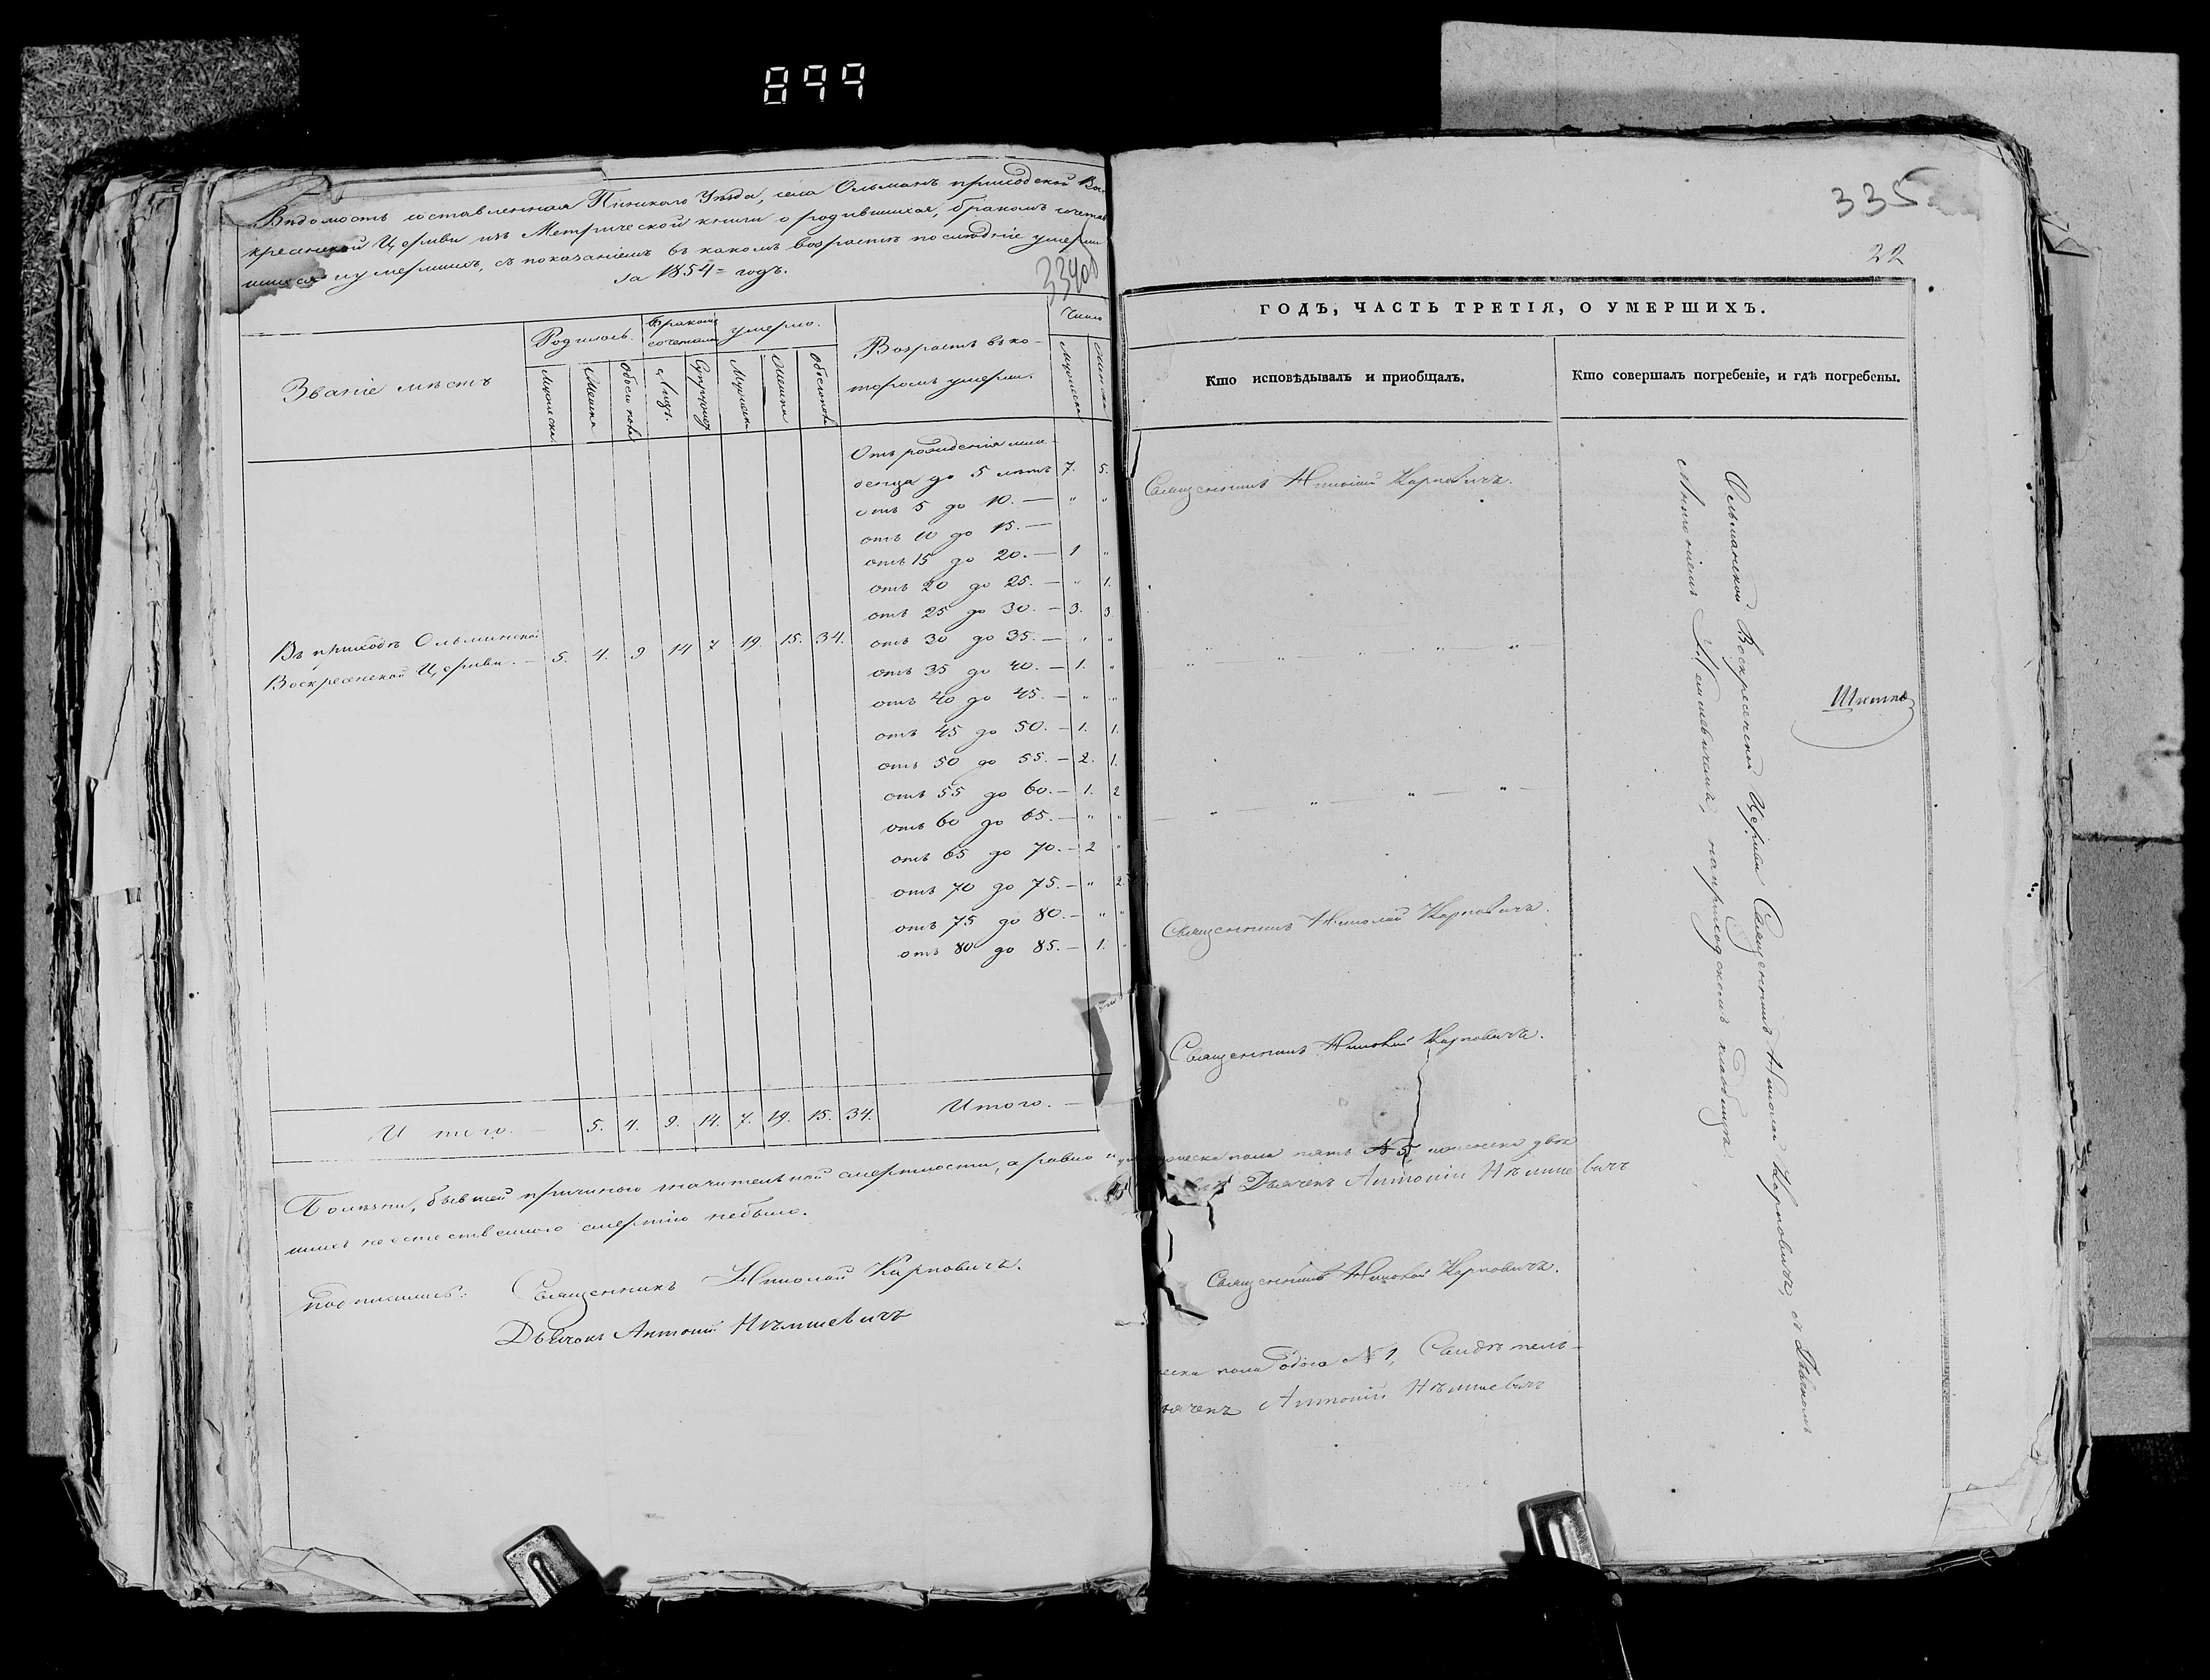 899
Вѣдомость составленная Пинскаго Уѣзда, села Ольманъ приходской Вос-
кресенской Церкви изъ Метрической книги о родившихся, бракомъ сочетав
шихся и умершихъ, съ показаніемъ въ какомъ возрастѣ послѣдніе умерли
за 1854= годъ.
334об
Званіе мѣстъ
Родилось.
Бракомъ сочетали
умерло.
Возрастъ въ ко-
торомъ умерли.
Число
Мужеска
Женска
Обоего пола
Лицъ.
Супружес
Мужеска
Женска
Обоего пола
Мужеска
Женска
Отъ рожденія мла-
денца до 5 лѣтъ 7. 5.
отъ 5 до 10. — " "
отъ 10 до 15. —
отъ 15 до 20. — 1 "
отъ 20 до 25. — " 1.
отъ 25 до 30. — 3. 3
Въ приходѣ Ольманской
Воскресенской Церкви. — 5. 4. 9 14 7 19. 15. 34.
отъ 30 до 35. — " "
отъ 35 до 40. — 1. "
отъ 40 до 45. — " "
отъ 45 до 50. — 1. 1.
отъ 50 до 55. — 2. 1.
отъ 55 до 60. — 1. 2
отъ 60 до 65. — " "
отъ 65 до 70. — 2 "
отъ 70 до 75. — " 2.
отъ 75 до 80. — " "
отъ 80 до 85. — 1. "
И того. — 5. 4. 9. 14. 7. 19. 15. 34. Итого. —
Болѣзни, бывшей причиною значительной смертности, а равно и умер
шихъ неестественною смертію небыло.
Подписались: Священникъ Николай Карповичъ.
Дьячокъ Антоній Нѣмшевичъ
335
22
ГОДЪ, ЧАСТЬ ТРЕТІЯ, О УМЕРШИХЪ.
Кто исповѣдывалъ и пріобщалъ.
Кто совершалъ погребеніе, и гдѣ погребены.
Священникъ Николай Карповичъ.
" — " — " — " — "
— " — " — " — " —
Священникъ Николай Карповичъ.
Священникъ Николай Карповичъ.
жеска пола пять № 5, женска два
Дьячекъ Антоній Нѣмшевичъ
Священникъ Николай Карповичъ.
еска пола одна № 1, Свидѣтель-
ьячекъ Антоній Нѣмшевичъ
Ольманской Воскресенской Церкви Священникъ Николай Карповичъ, съ Дьячкомъ
Антоніемъ Нѣмшевичемъ, на приходскомъ кладбищѣ.